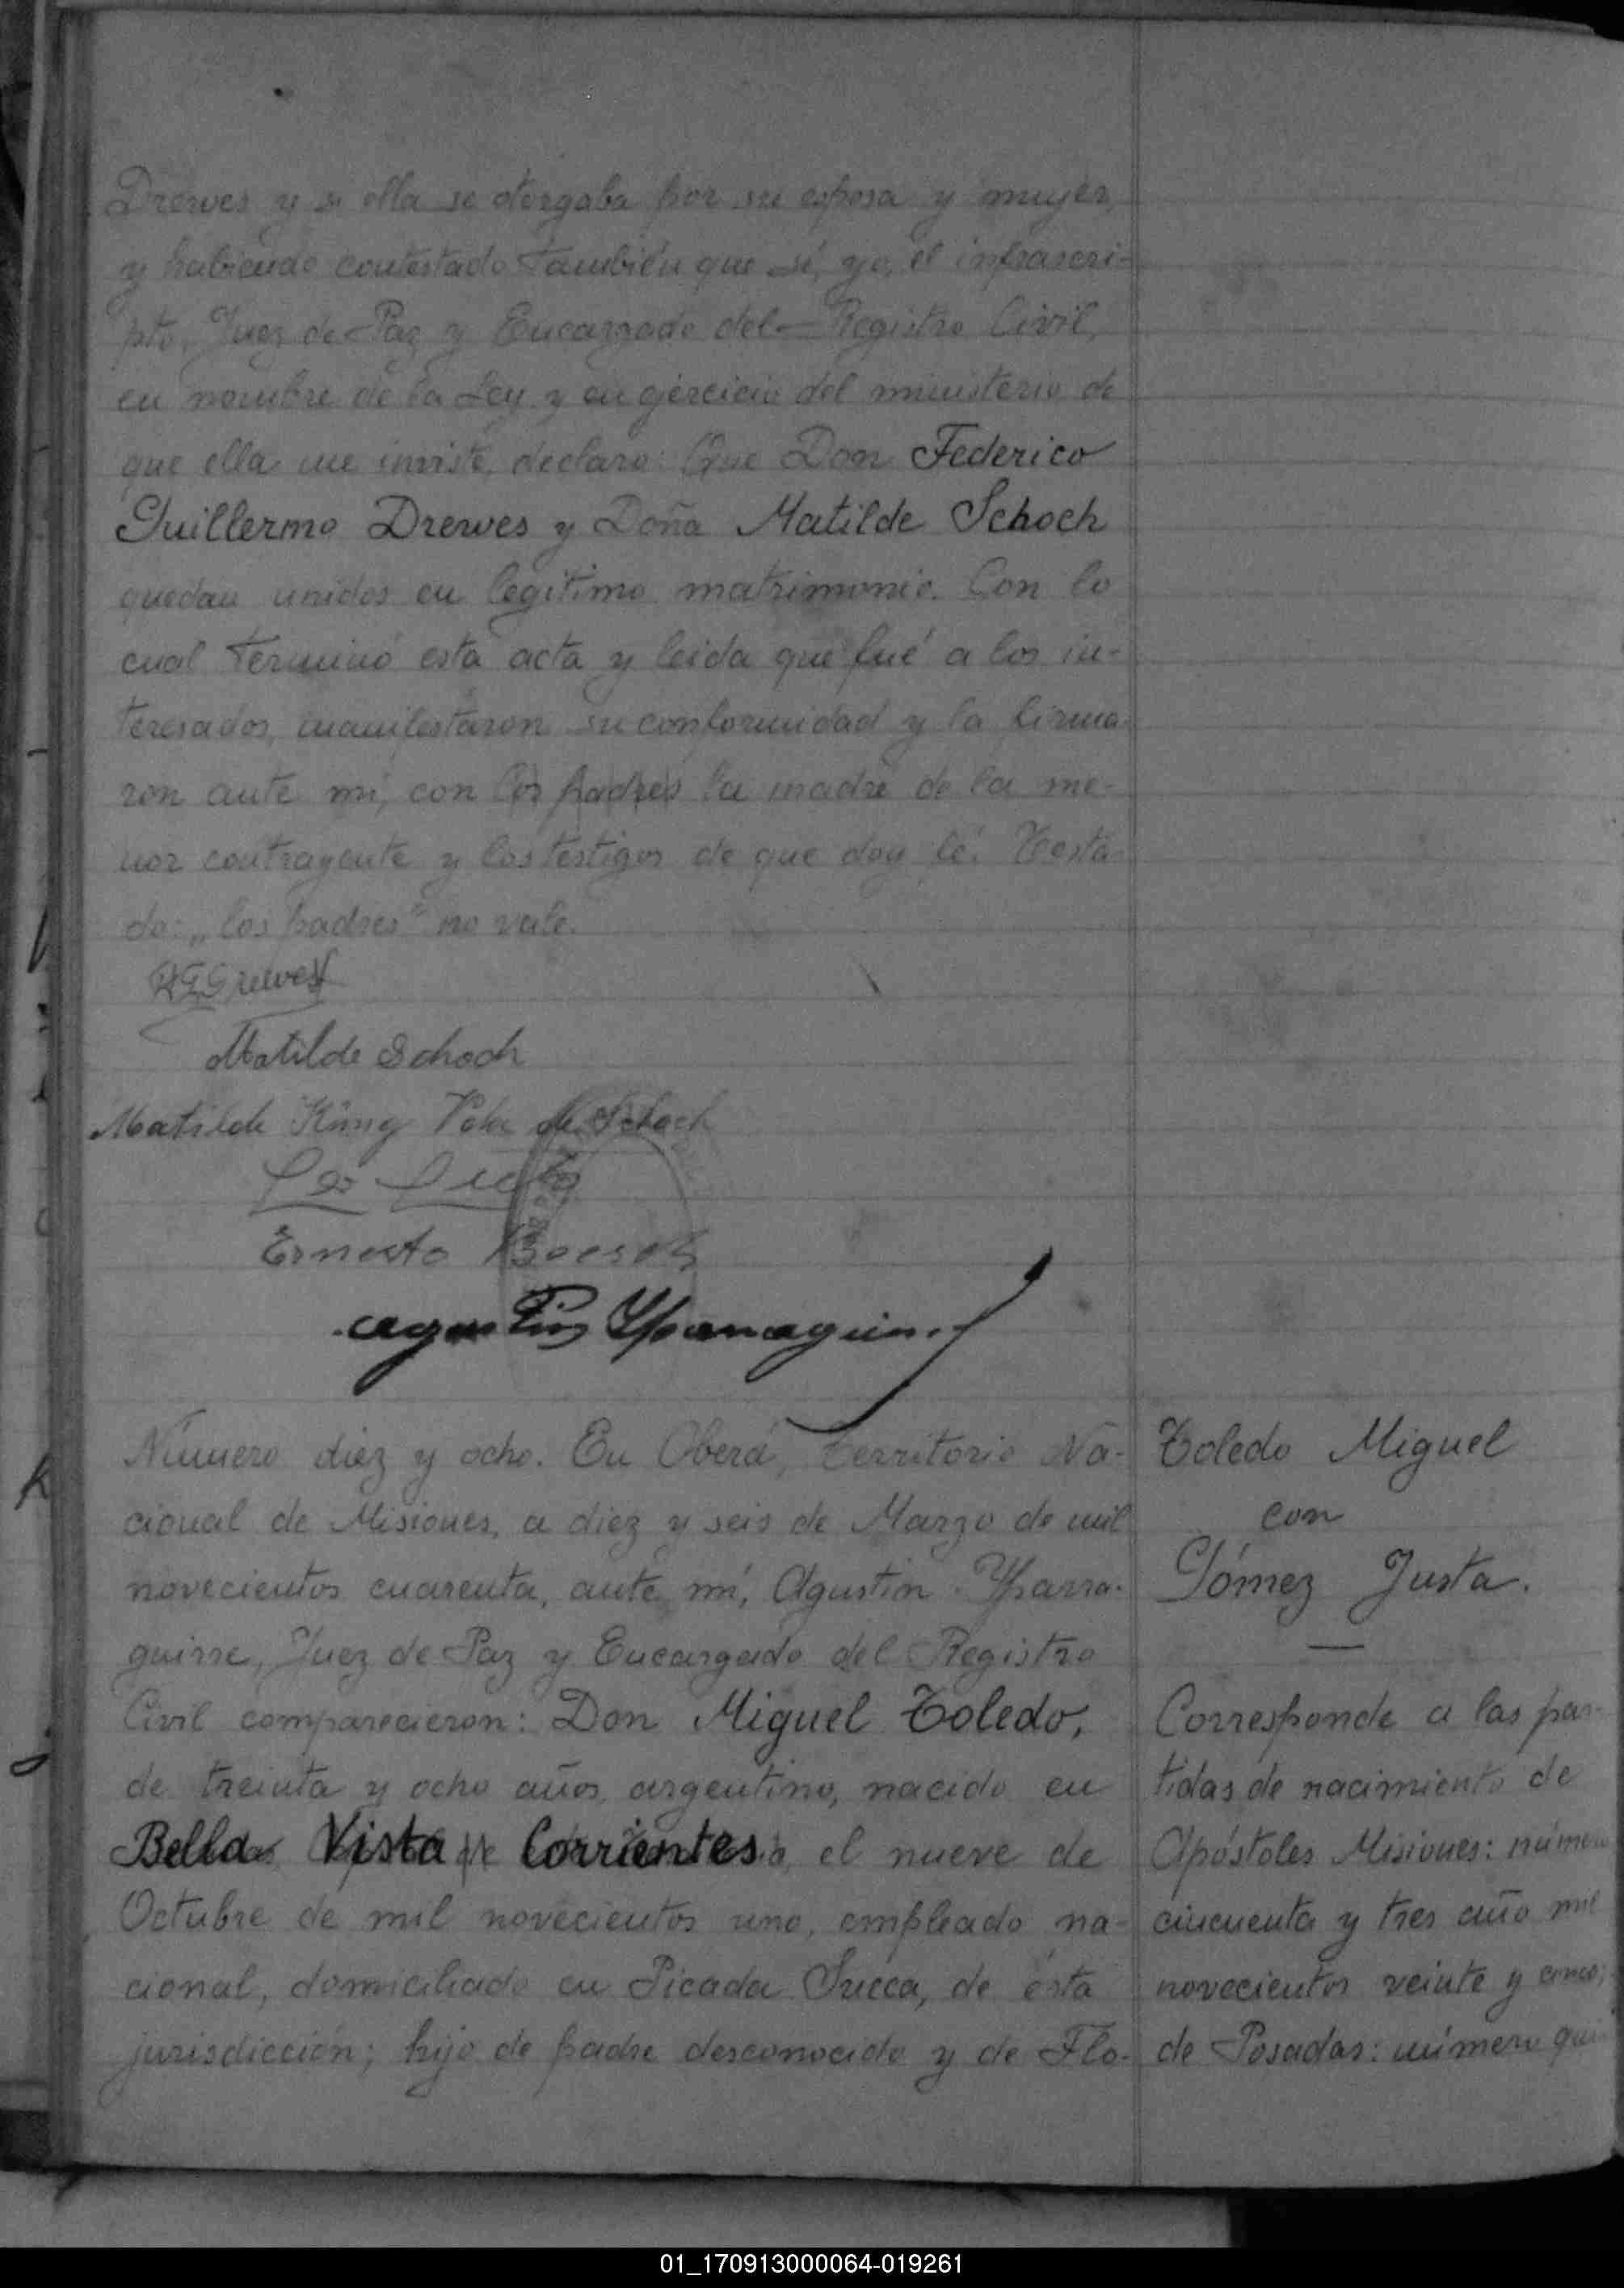 Drewes y si ella se otorgaba por su esposa y mujer,
y habiendo contestado también que sí, yo, el infrascri-
pto, Juez de Paz y Encargado del Registro Civil,
en nombre de la Ley y en ejercicio del ministerio de
que ella me inviste, declaro: Que Don Federico
Guillermo Drewes y Doña Matilde Schoch
quedan unidos en legítimo matrimonio. Con lo
cual terminó esta acta y leida que fué a los in-
teresados, manifestaron su conformidad y la firma-
ron ante mí, con los padres la madre de la me-
nor contrayente y los testigos de que doy fé. Testa-
do: „los padres" no vale.
Matilde Schoch
Matilde Küng Vda de Schoch
Ernesto Boesch
Agustin Yparraguirre
Número diez y ocho. En Oberá, Territorio Na-
cional de Misiones, a diez y seis de Marzo de mil
novecientos cuarenta, ante mí, Agustin Yparra-
guirre, Juez de Paz y Encargado del Registro
Civil comparecieron: Don Miguel Toledo,
de treinta y ocho años, argentino, nacido en
Bella Vista Corrientes, el nueve de
Octubre de mil novecientos uno, empleado na-
cional, domiciliado en Picada Sueca, de ésta
jurisdicción; hijo de padre desconocido y de Flo-
Toledo Miguel
con
Gómez Justa.
Corresponde a las par-
tidas de nacimiento de
Apóstoles Misiones: número
cincuenta y tres año mil
novecientos veinte y cinco;
de Posadas: número qui
01_170913000064-019261